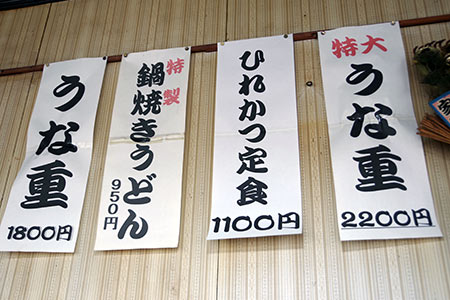 うな重
1800円
特製
鍋焼きうどん
950円
ひれかつ定食
1100円
特大
うな重
2200円